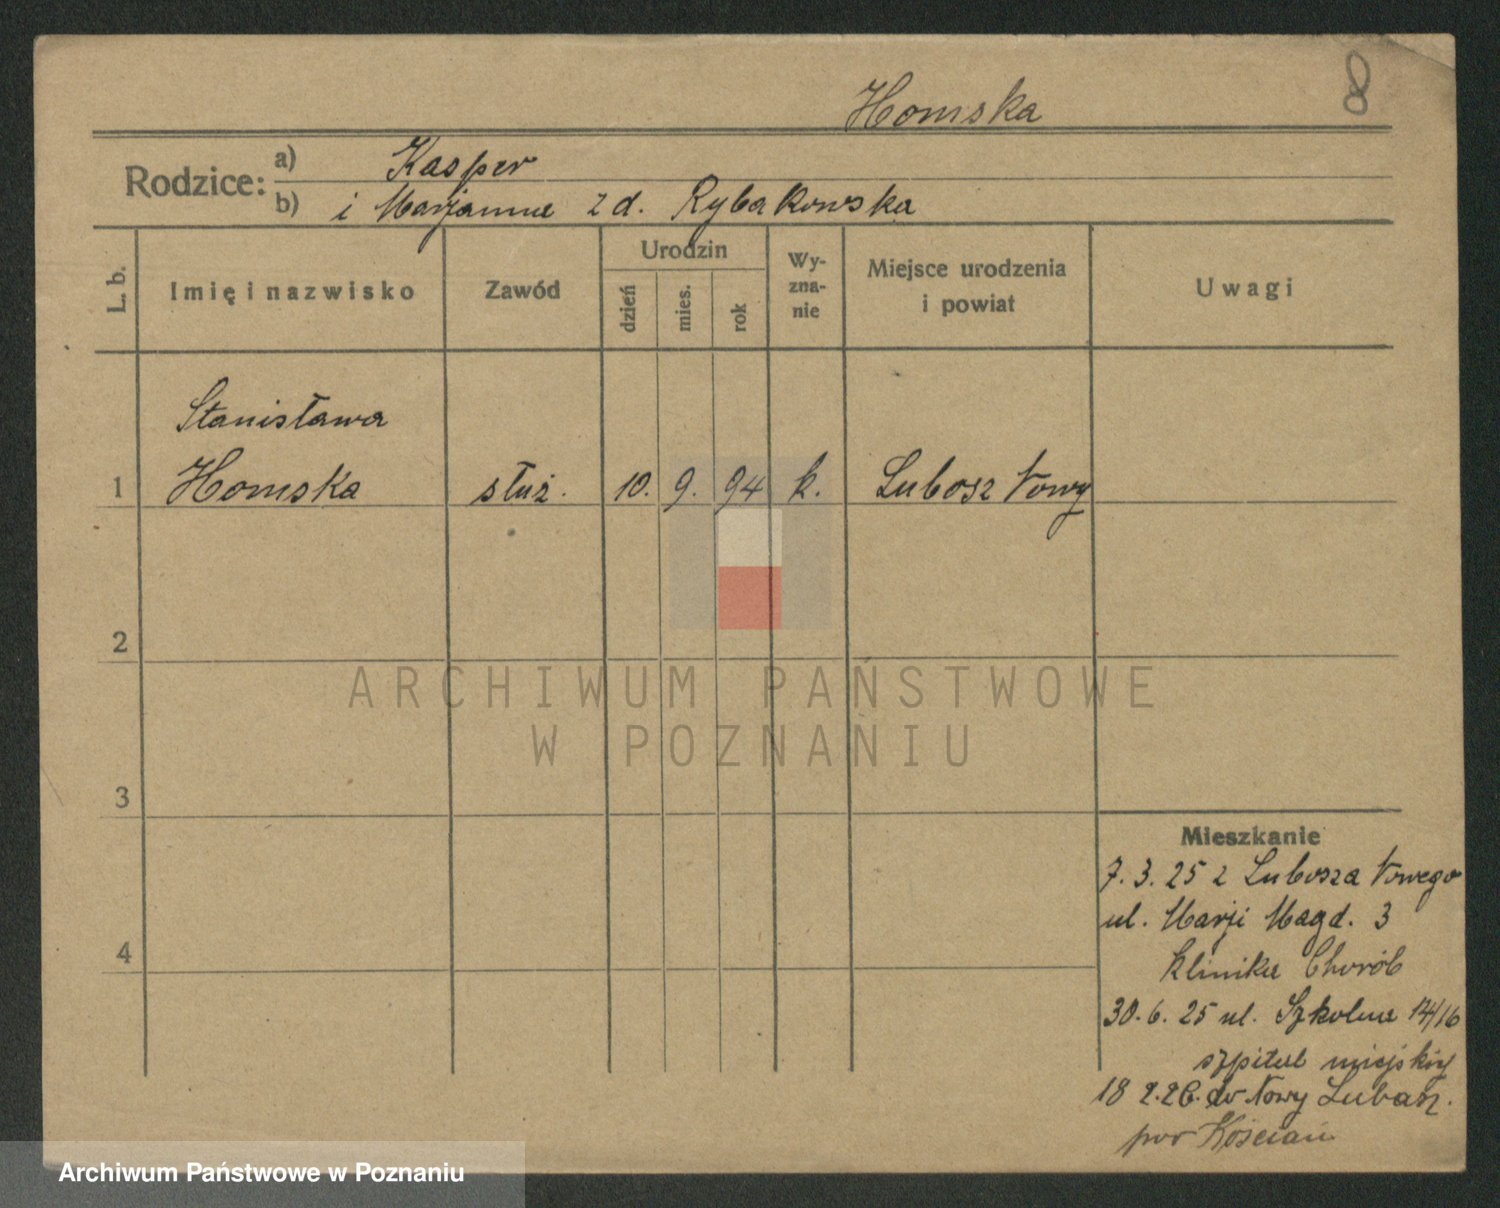 Homska
8
Rodzice: a) Kasper
b) i Marjanna z d. Rybakowska
L. b.
Imię i nazwisko
Zawód
Urodzin
dzień
mies.
rok
Wy-
zna-
nie
Miejsce urodzenia
i powiat
Uwagi
Stanisława
1 Homska służ. 10. 9. 94 k. Lubosz Nowy
2
3
4
ARCHIWUM PAŃSTWOWE
W POZNANIU
Mieszkanie
7. 3. 25 z Lubosza Nowego
ul. Marji Magd. 3
klinika Chorób
30. 6. 25 ul. Szkolna 14/16
szpital miejski
18 2. 26. do Nowy Lubosz.
pow Kościan
Archiwum Państwowe w Poznaniu